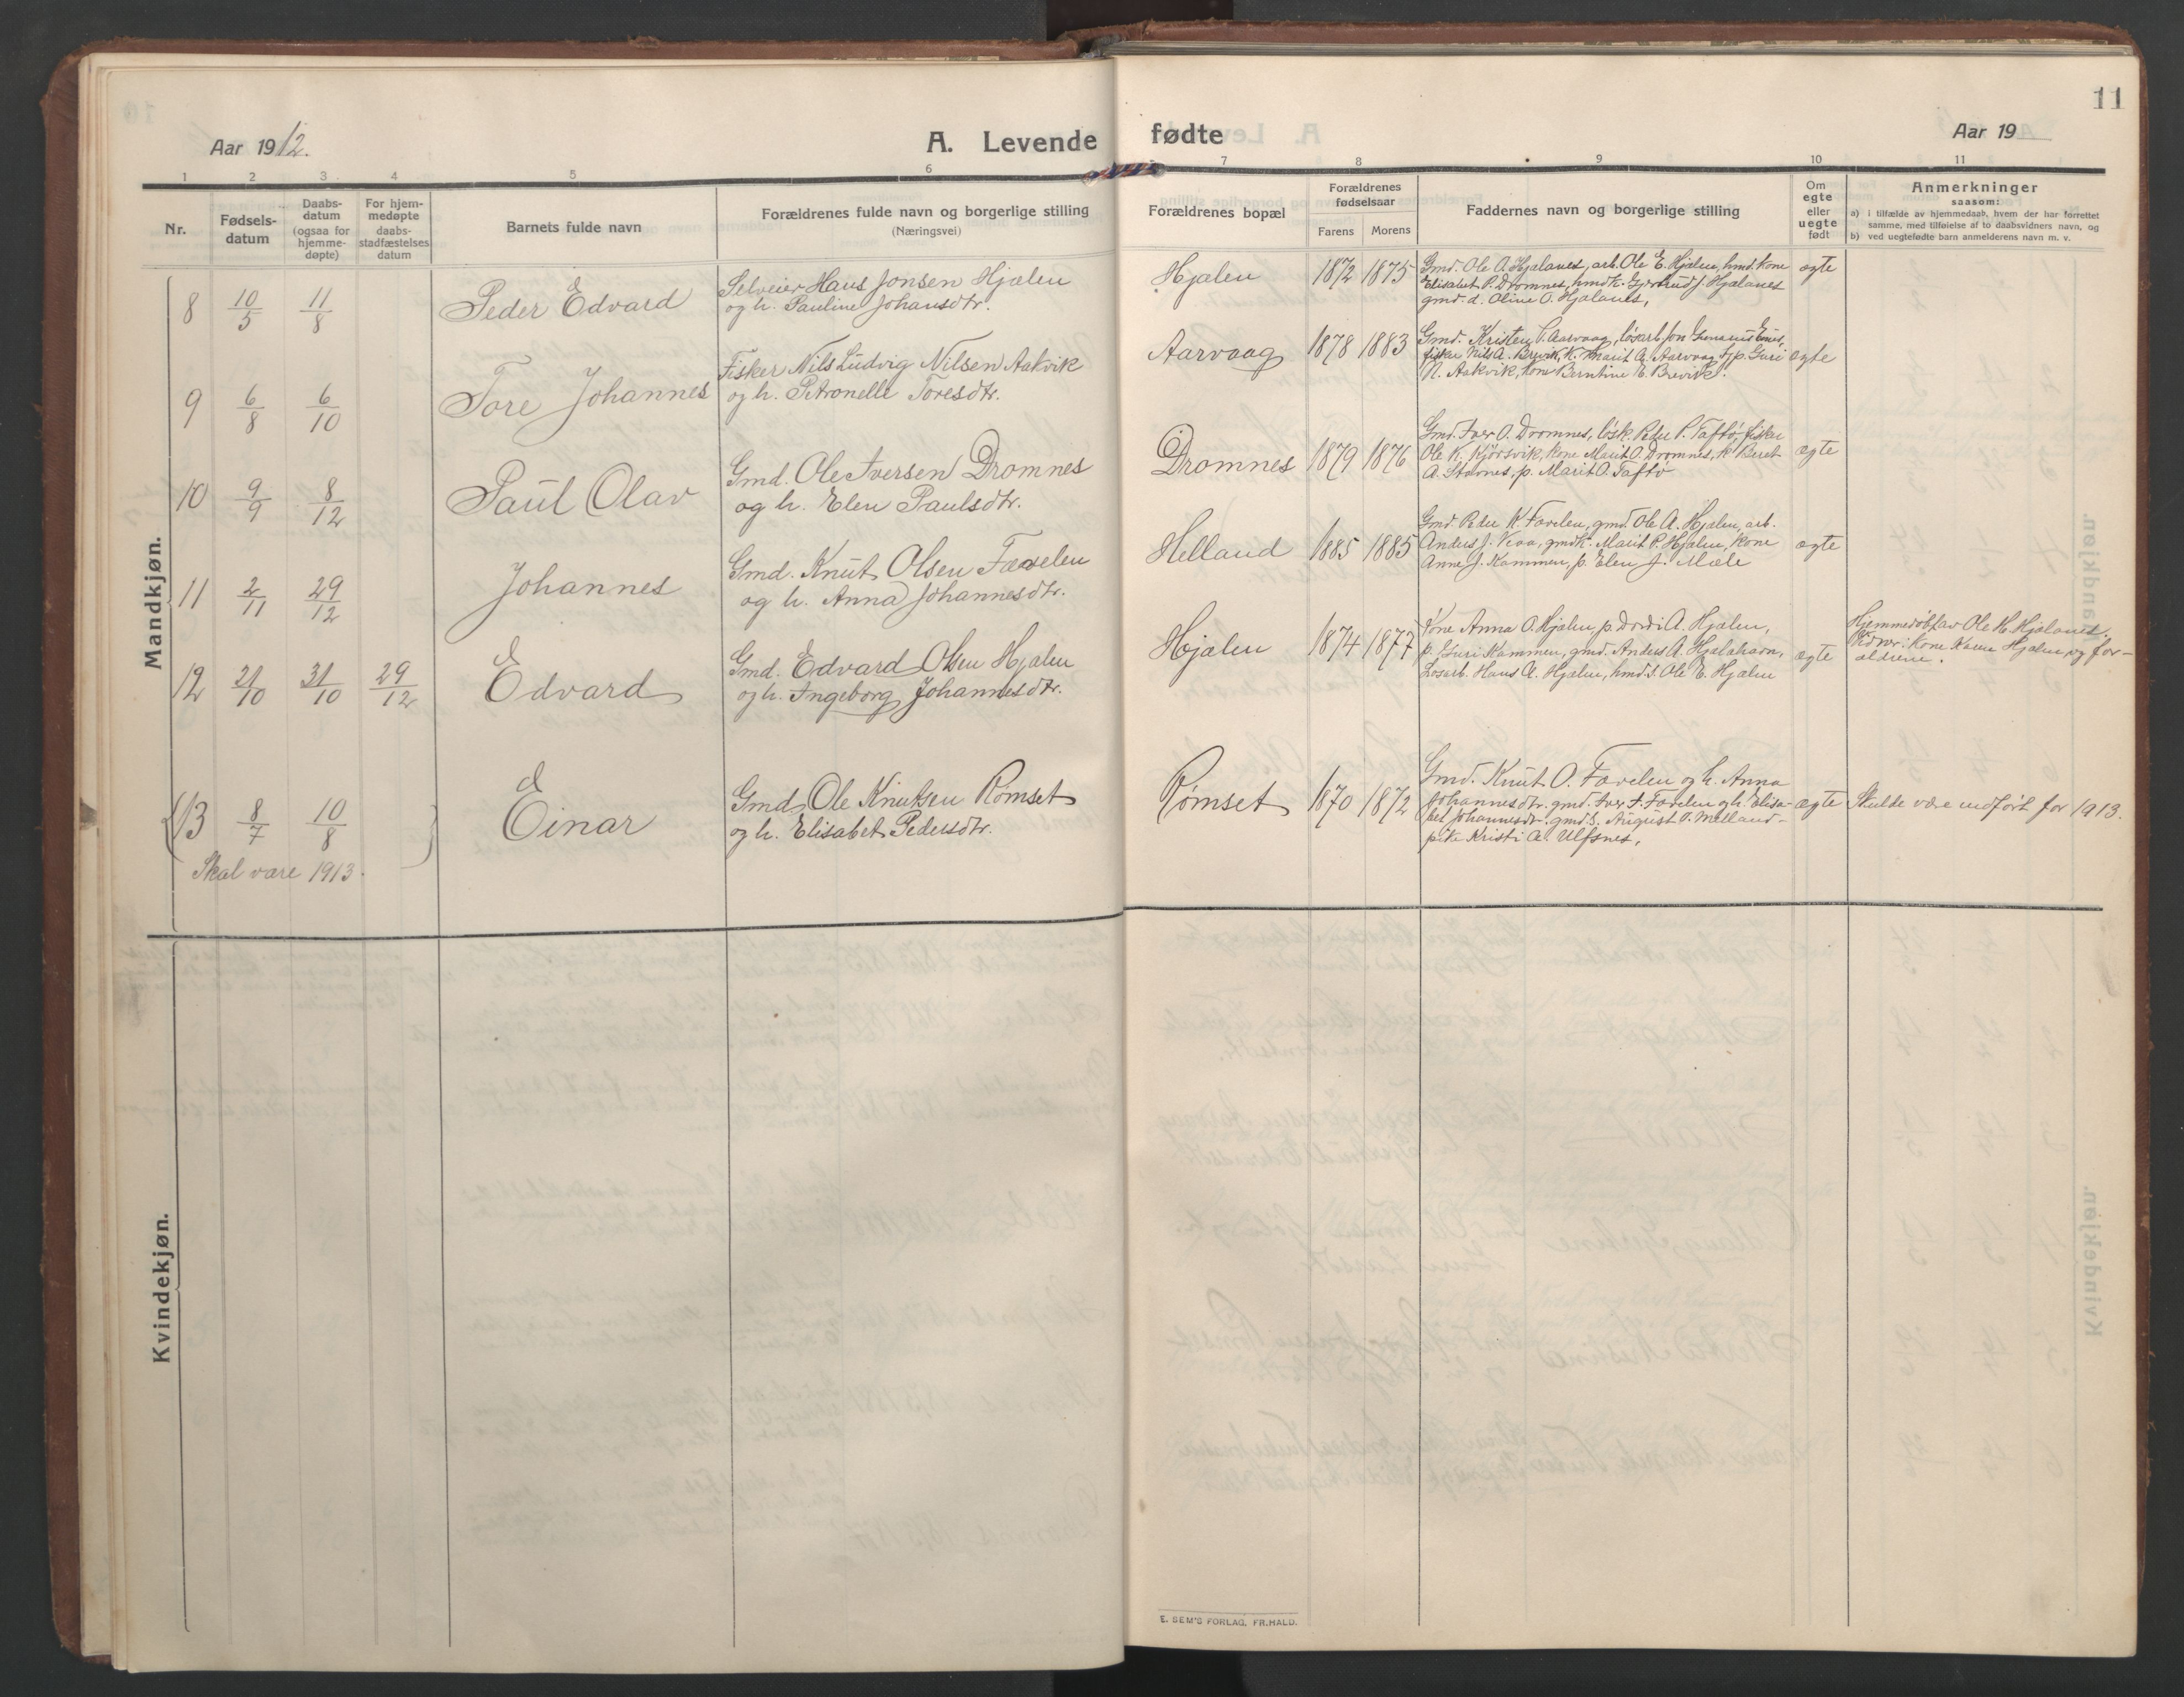 11
Aar 1912.
A. Levende fødte
Aar 19
1 2 3 4 5 6 7 8 9 10 11
Nr.
Fødsels-
datum
Daabs-
datum
(ogsaa for
hjemme-
døpte)
For hjem-
medøpte
daabs-
stadfæstelses
datum
Barnets fulde navn
Forældrenes fulde navn og borgerlige stilling
(Næringsvei)
Forældrenes bopæl
Forældrenes
fødselsaar
Farens Morens
Faddernes navn og borgerlige stilling
Om
egte
eller
uegte
født
Anmerkninger
saasom:
a) i tilfælde av hjemmedaab, hvem der har forrettet
samme, med tilføielse af to daabsvidners navn, og
b) ved uegtefødte barn anmelderens navn m. v.
Mandkjøn.
8 10/5 11/8 Peder Edvard
Selveier Hans Jonsen Hjælen
og h. Pauline Johansdtr.
Hjælen 1872 1875
Gmd. Ole A. Hjelanes, arb. Ole E. Hjælen, hmd. kone
Elisabet P. Dromnes, hmdk. Gjertrud J. Hjælanes
gmd. d. Oline O. Hjalanes,
egte
9 6/8 6/10 Tore Johannes
Fisker Nils Ludvig Nilsen Aakvik
og h. Petronelle Toresdtr.
Aarvaag 1878 1883
Gmd. Kristen T. Aarvaag, løsarb. Jon
fisker Nils A. Brevik, K. Marit A. Aarvaag, Guri
N. Aakvik, kone Berntine E. Brevik.
egte
10 9/9 8/12 Paul Olav
Gmd. Ole Iversen Dromnes
og h. Elen Paulsdtr.
Dromnes 1879 1876
Gmd. Iver O. Dromnes, løsk. Peder P. Taftø, fisker
Ole K. Kjørsvik, kone Marit O. Dromnes, k. Beret
A. Stavnes, p. Marit O. Taftø
egte
11 2/11 29/12 Johannes
Gmd. Knut Olsen Færelen
og h. Anna Johannesdtr.
Helland 1885 1885
Gmd. Peder K. Færelen, gmd. Ole A. Hjælen, arb.
Anders J. gmdk. Marit P. Hjælen, kone
Anne J. Kammen, p. Elen J. Mæle
egte
12 21/10 31/10 29/12 Edvard
Gmd. Edvard Olsen Hjælen
og h. Ingeborg Johannesdtr.
Hjælen 1874 1877
Kone Anna O. Hjælen, p. Dordi A. Hjælen,
p. Guri Kammen, gmd. Anders A. Hjælahavn,
Løsarb. Hans A. Hjælen, hmd. s. Ole E. Hjælen
egte
Hjemmedøbt av Ole H. Hjælanes.
Vidner: Kone Karen Hjælen og for-
ældrene.
13 8/7 10/8 Einar
Gmd. Ole Knutsen Rømset
og h. Elisabet Pedersdtr.
Rømset 1870 1872
Gmd. Knut O. Færelen og h. Anna
Johannesdtr. gmd. Iver I. Færelen og h. Elisa-
bet Johannesdtr. gmd. s. August T. Melland
pike Kristi A. Ulfsnes,
egte
Skulde være indført for 1913.
Skal være 1913.
Kvindekjøn.
E. SEM'S FORLAG, FR.HALD.